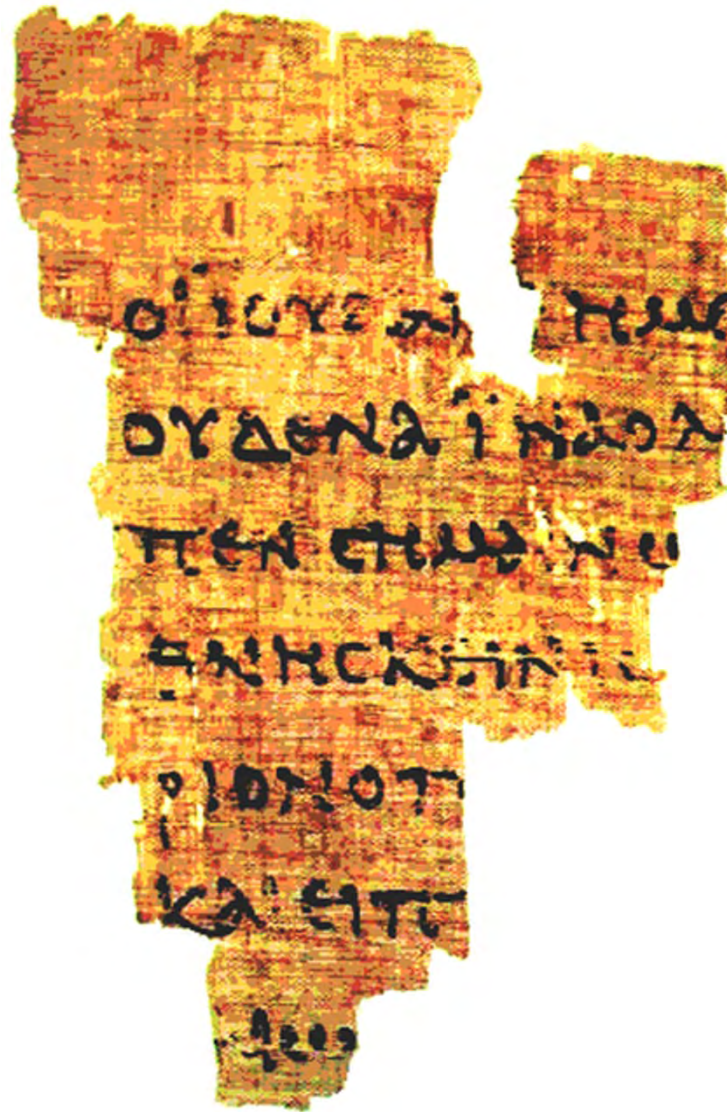 ΟΙ ΙΟΥΔΑΙ ΗΜΕ
ΟΥΔΕΝΑ ΪΝΑ Ο Λ
ΠΕΝ ϹΗΜΑΙΝΩ
ΘΝΗϹΚΕΙΝ
ΡΙΟΝ Ο Π
ΚΑΙ ΕΙΠ